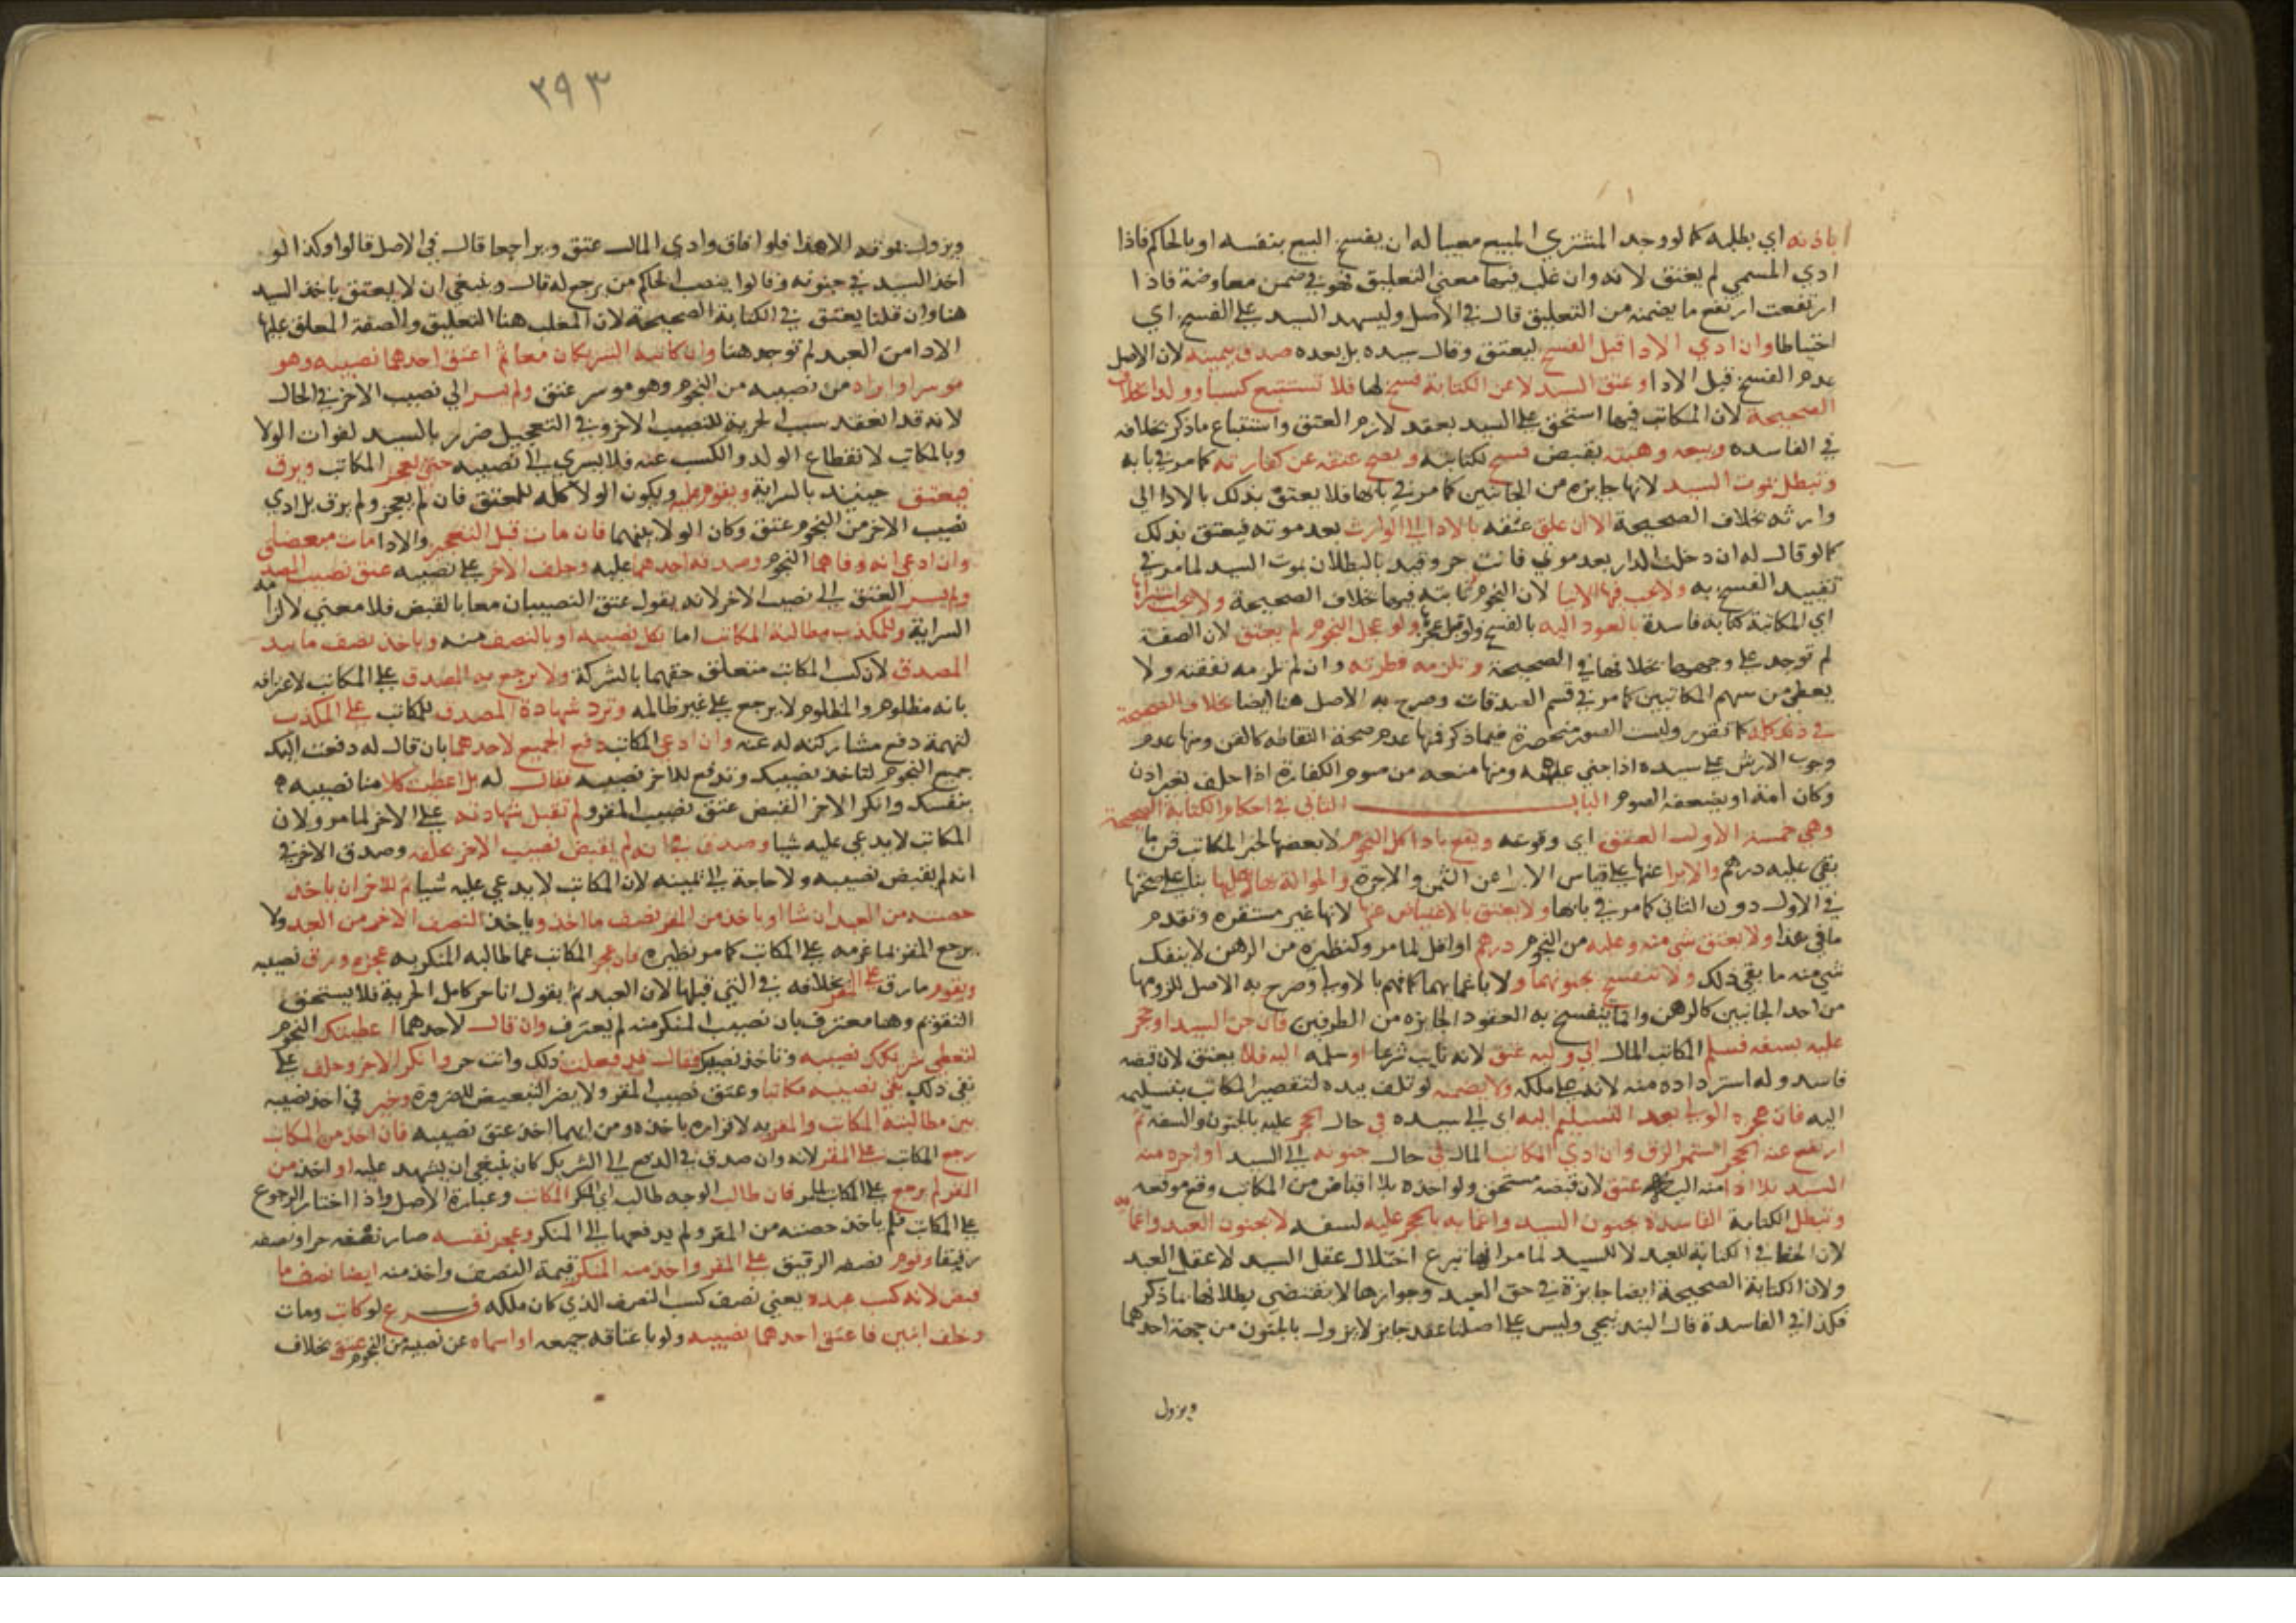 باذنه اي بطله كما لو وجد المشتري المبيع معيبا له ان يفسخ البيع بنفسه او بالحاكم فاذا
ادي المسمي لم يعتق لانه وان غلب فيها معني التعليق فهو في ضمن معاوضة فاذا
ارتفعت ارتفع ما يضمنه من التعليق قال في الاصل وليشهد السيد علي الفسخ اي
احتياطا وان ادي الادا قبل الفسخ ليعتق وقال سيده بل بعده صدق بيمينه لان الاصل
عدم الفسخ قبل الادا وعتق السيد لا عن الكتابة فسخ لها فلا تستتبع كسبا وولدا بخلاف
الصحيحة لان المكاتب فيها استحق علي السيد بعقد لازم العتق واستتباع ما ذكر بخلافه
في الفاسده وبيعه وهبته بقبض فسخ لكتابته ويصح عتقه عن كفارته كما مر في بابه
وتبطل بموت السيد لانها جايزه من الجانبين كما مر في بابها فلا يعتق بذلك بالادا الي
وارثه بخلاف الصحيحة الا ان علق عتقه بالادا الي الوارث بعد موته فيعتق بذلك
كما لو قال له ان دخلت الدار بعد موتي فانت حر وقيد بالبطلان بموت السيد لما مر في
تقييد الفسخ به ولا يجب فيها الايتا لان النجوم ثابته فيها خلاف الصحيحة ولا يجب استبراها
اي المكاتبة كتابة فاسدة بالعود اليه بالفسخ ولو بالعجز ولو عجل النجوم لم يعتق لان الصفة
لم توجد علي وجهها بخلافها في الصحيحة وتلزمه فطرته وان لم تلزمه نفقته ولا
يعطي من سهم المكاتبين كما مر في قسم الصدقات وصرح به الاصل هنا ايضا بخلاف الصحيحة
في ذلك كله كما تقرر وليست الصور منحصرة فيما ذكر فمنها عدم صحة التقاطه كالقن ومنها عدم
وجوب الارش علي سيده اذا جني عليه ومنها منعه من صوم الكفارة اذا حلف بغير اذن
وكان امة او يضعفه الصوم الباب الثاني في احكام الكتابة الصحيحة
وهي خمسة الاول العتق اي وقوعه ويقع بادا كل النجوم لا بعضها لخبر المكاتب قن ما
بقي عليه درهم والابرا عنها علي قياس الابرا عن الثمن والاجرة والحوالة بها لا عليها بنا علي صحتها
في الاول دون الثاني كما مر في بابها ولا يعتق بالاعتياض عنها لانها غير مستقره وتقدم
ما في هذا ولا يعتق شي منه وعليه من النجوم درهم او اقل لما مر وكنظيره من الرهن لا ينفك
شي منه ما بقي ذلك ولا تنفسخ بجنونهما ولا باغمايهما كما فهم بالاولي وصرح به الاصل للزومها
من احد الجانبين كالرهن وانما تنفسخ به العقود الجايزه من الطرفين فان جن السيد او حجر
عليه بسفه فسلم المكاتب المال الي وليه عتق لانه نايب شرعا او سلمه اليه فلا يعتق لان قبضه
فاسد وله استرداده منه لانه علي ملكه ولا يضمنه لو تلف بيده لتقصير المكاتب بتسليمه
اليه فان عجزه الولي بعد التسليم اليه اي الي سيده في حال الحجر عليه بالجنون والسفه ثم
ارتفع عنه الحجر استمر الرق وان ادي المكاتب المال في حال جنونه الي السيد او اخره منه
السيد بلا ادا منه اليه عتق لان قبضه مستحق ولو اخذه بلا اقباض من المكاتب وقع موقعه
وتبطل الكتابة الفاسدة بجنون السيد واغمايه بالحجر عليه لسفه لا بجنون العبد واغمايه
لان الحظ في الكتابة للعبد لا للسيد لما مر انها تبرع اختلال عقل السيد لا عقل العبد
ولان الكتابة الصحيحة ايضا جايزة في حق العبد وجوازها لا يقتضي بطلانها بما ذكر
فكذا في الفاسدة قال البندنيجي وليس علي اصلنا عقد جايز لا يزول بالجنون من جهة احدهما
ويزول
٣٩٣
ويزول بموته الا هذا فلو افاق وادي المال عتق وتراجعا قال في الاصل قالوا وكذا لو
اخذ السيد في جنونه وقالوا ينصب الحاكم من يرجع له قال وينبغي ان لا يعتق باخذ السيد
هنا وان قلنا يعتق في الكتابة الصحيحة لان المغلب هنا التعليق والصفة المعلق عليها
الادا من العبد لم توجد هنا وان كاتبه الشريكان معا ثم اعتق احدهما نصيبه وهو
موسر او ابراه من نصيبه من النجوم وهو موسر عتق ولم يسر الي نصيب الاخر في الحال
لانه قد انعقد سبب الحرية للنصيب الاخر وفي التعجيل ضرر بالسيد لفوات الولا
وبالمكاتب لانقطاع الولد والكسب عنه فلا يسري الي نصيبه حتي يعجز المكاتب ويرق
فيعتق حينئذ بالسراية ويقوم عليه ويكون الولا كله للمعتق فان لم يعجز ولم يرق بل ادي
نصيب الاخر من النجوم عتق وكان الولا بينهما فان مات قبل التعجيز والادا مات مبعضا
وان ادعي انه وفاهما النجوم وصدقه احدهما عليه وحلف الاخر علي نصيبه عتق نصيب المصدق
ولم يسر العتق الي نصيب الاخر لانه يقول عتق النصيبان معا بالقبض فلا معني لالزامه
السراية وللمكذب مطالبة المكاتب اما بكل نصيبه او بالنصف منه وياخذ نصف ما بيد
المصدق لان كسب المكاتب متعلق حقهما بالشركة ولا يرجع به المصدق علي المكاتب لاعترافه
بانه مظلوم والمظلوم لا يرجع علي غير ظالمه وترد شهادة المصدق للمكاتب علي المكذب
لتهمة دفع مشاركته له عنه وان ادعي المكاتب دفع الجميع لاحدهما بان قال له دفعت اليك
جميع النجوم لتاخذ نصيبك وتدفع للاخر نصيبه فقال له بل اعطيت كلا منا نصيبه
بنفسك وانكر الاخر القبض عتق نصيب المقر ولم تقبل شهادته علي الاخر لما مر ولان
المكاتب لا يدعي عليه شيا وصدق في انه لم يقبض نصيب الاخر بحلفه وصدق الاخر في
انه لم يقبض نصيبه ولا حاجة الي يمينه لان المكاتب لا يدعي عليه شيا ثم للاخر ان ياخذ
حصته من العبد ان شا او ياخذ من المقر نصف ما اخذ وياخذ النصف الاخر من العبد ولا
يرجع المقر بما غرمه علي المكاتب كما مر نظيره فان عجز المكاتب عما طالبه المنكر به عجزه ورق نصيبه
ويقوم ما رق علي المقر بخلافه في التي قبلها لان العبد ثم يقول انا حر كامل الحرية فلا يستحق
التقويم وهنا معترف بان نصيب المنكر منه لم يعترف وان قال لاحدهما اعطيتك النجوم
لتعطي شريكك نصيبه وتاخذ نصيبك فقال قد فعلت ذلك وانت حر وانكر الاخر وحلف علي
نفي ذلك بقي نصيبه مكاتبا وعتق نصيب المقر ولا يضر التبعيض للضرورة وخير في اخذ نصيبه
بين مطالبة المكاتب والمقر به لاقراره باخذه ومن ايهما اخذ عتق نصيبه فان اخذ من المكاتب
رجع المكاتب علي المقر لانه وان صدق في الدفع الي الشريك كان ينبغي ان يشهد عليه او اخذ من
المقر لم يرجع علي المكاتب لما مر فان طالب الوجه طالب اي المنكر المكاتب وعبارة الاصل واذا اختار الرجوع
علي المكاتب فلم ياخذ حصته من المقر ولم يدفعها الي المنكر وعجز نفسه صار نصفه حرا ونصفه
رقيقا وقوم نصفه الرقيق علي المقر واخذ منه المنكر قيمة النصف واخذ منه ايضا نصف ما
قبض لانه كسب عبده يعني نصف كسب النصف الذي كان ملكه فرع لو كاتب ومات
وخلف ابنين فاعتق احدهما نصيبه ولو باعتاقه جميعه او ابراه عن نصيبه من النجوم عتق بخلاف